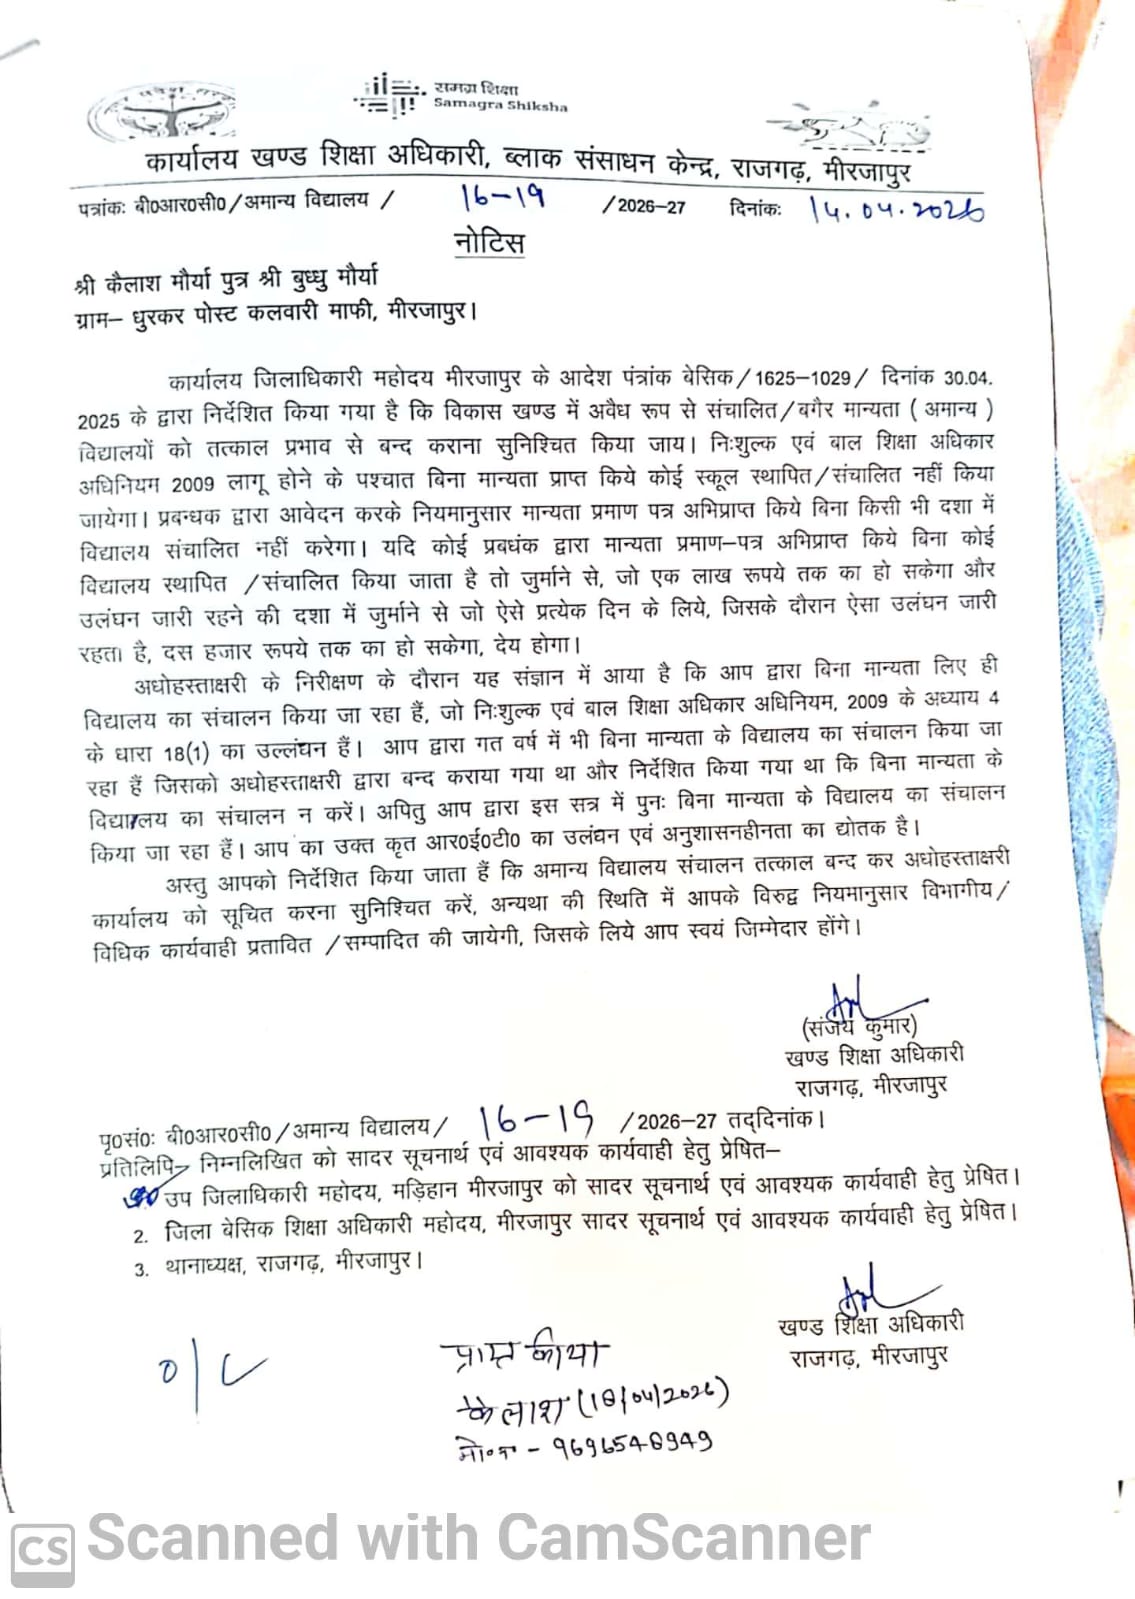 समग्र शिक्षा
Samagra Shiksha
कार्यालय खण्ड शिक्षा अधिकारी, ब्लाक संसाधन केन्द्र, राजगढ़, मीरजापुर
पत्रांकः बी0आर0सी0/अमान्य विद्यालय / 16-19 /2026-27 दिनांकः 14.04.2026
नोटिस
श्री कैलाश मौर्या पुत्र श्री बुध्धु मौर्या
ग्राम– धुरकर पोस्ट कलवारी माफी, मीरजापुर।
कार्यालय जिलाधिकारी महोदय मीरजापुर के आदेश पंत्रांक बेसिक/1625-1029/ दिनांक 30.04.
2025 के द्वारा निर्देशित किया गया है कि विकास खण्ड में अवैध रूप से संचालित/बगैर मान्यता ( अमान्य )
विद्यालयों को तत्काल प्रभाव से बन्द कराना सुनिश्चित किया जाय। निःशुल्क एवं बाल शिक्षा अधिकार
अधिनियम 2009 लागू होने के पश्चात बिना मान्यता प्राप्त किये कोई स्कूल स्थापित/संचालित नहीं किया
जायेगा। प्रबन्धक द्वारा आवेदन करके नियमानुसार मान्यता प्रमाण पत्र अभिप्राप्त किये बिना किसी भी दशा में
विद्यालय संचालित नहीं करेगा। यदि कोई प्रबधंक द्वारा मान्यता प्रमाण–पत्र अभिप्राप्त किये बिना कोई
विद्यालय स्थापित /संचालित किया जाता है तो जुर्माने से, जो एक लाख रूपये तक का हो सकेगा और
उलंघन जारी रहने की दशा में जुर्माने से जो ऐसे प्रत्येक दिन के लिये, जिसके दौरान ऐसा उलंघन जारी
रहता है, दस हजार रूपये तक का हो सकेगा, देय होगा।
अधोहस्ताक्षरी के निरीक्षण के दौरान यह संज्ञान में आया है कि आप द्वारा बिना मान्यता लिए ही
विद्यालय का संचालन किया जा रहा हैं, जो निःशुल्क एवं बाल शिक्षा अधिकार अधिनियम, 2009 के अध्याय 4
के धारा 18(1) का उल्लंघन हैं। आप द्वारा गत वर्ष में भी बिना मान्यता के विद्यालय का संचालन किया जा
रहा हैं जिसको अधोहस्ताक्षरी द्वारा बन्द कराया गया था और निर्देशित किया गया था कि बिना मान्यता के
विद्यालय का संचालन न करें। अपितु आप द्वारा इस सत्र में पुनः बिना मान्यता के विद्यालय का संचालन
किया जा रहा हैं। आप का उक्त कृत आर0ई0टी0 का उलंघन एवं अनुशासनहीनता का द्योतक है।
अस्तु आपको निर्देशित किया जाता हैं कि अमान्य विद्यालय संचालन तत्काल बन्द कर अधोहस्ताक्षरी
कार्यालय को सूचित करना सुनिश्चित करें, अन्यथा की स्थिति में आपके विरुद्व नियमानुसार विभागीय/
विधिक कार्यवाही प्रतावित /सम्पादित की जायेगी, जिसके लिये आप स्वयं जिम्मेदार होंगे।
(संजय कुमार)
खण्ड शिक्षा अधिकारी
राजगढ़, मीरजापुर
पृ0संo: बी0आर0सी0/अमान्य विद्यालय/ 16-19 /2026-27 तद्दिनांक।
प्रतिलिपि– निम्नलिखित को सादर सूचनार्थ एवं आवश्यक कार्यवाही हेतु प्रेषित–
उप जिलाधिकारी महोदय, मड़िहान मीरजापुर को सादर सूचनार्थ एवं आवश्यक कार्यवाही हेतु प्रेषित।
2. जिला बेसिक शिक्षा अधिकारी महोदय, मीरजापुर सादर सूचनार्थ एवं आवश्यक कार्यवाही हेतु प्रेषित।
3. थानाध्यक्ष, राजगढ़, मीरजापुर।
खण्ड शिक्षा अधिकारी
राजगढ़, मीरजापुर
O/C
प्राप्त कीया
कैलाश (18/04/2026)
मो॰न॰ - 9696548949
CS Scanned with CamScanner